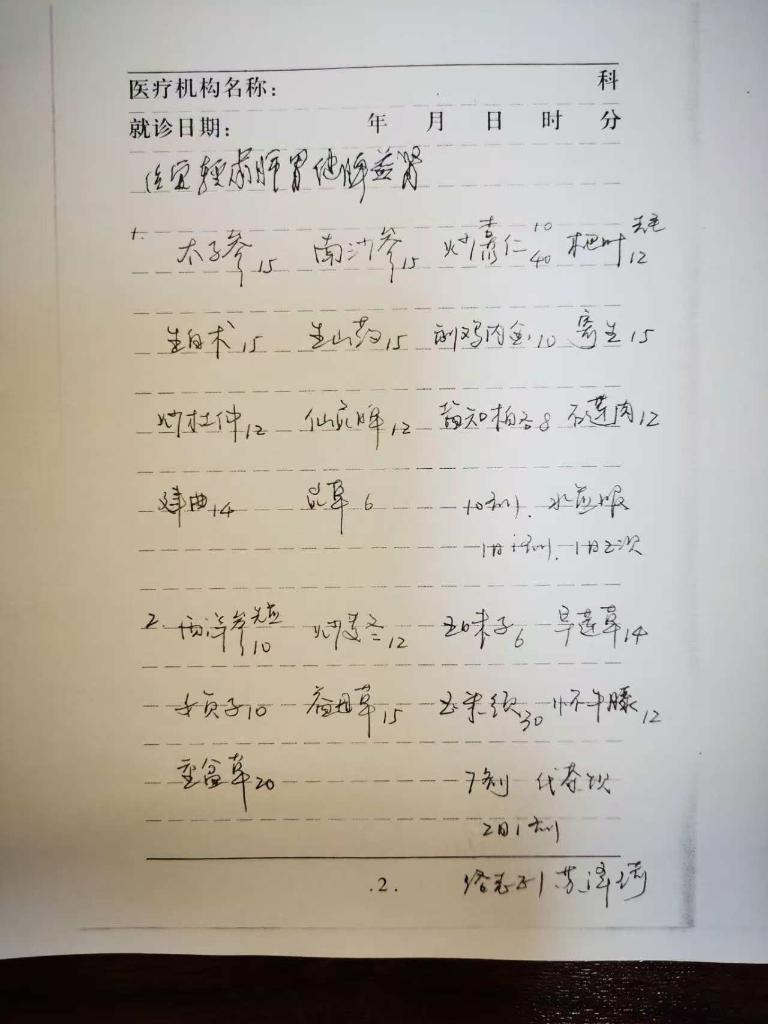 医疗机构名称: 科
就诊日期: 年 月 日 时 分
治宜轻肃肺胃健脾益肾
1.
太子参15 南沙参15 炒 仁10 40 杷叶去毛12
生白术15 生山药15 制鸡内金10 寄生15
炒杜仲12 仙灵脾12 知柏各8 石莲肉12
建曲14 草6 10剂. 水煎服
1日1剂. 1日3次
2. 西洋参先煎10 炒麦冬12 五味子6 旱莲草14
女贞子10 益母草15 玉米须30 怀牛膝12
垂盆草20 7剂 代茶饮
2日1剂
.2.